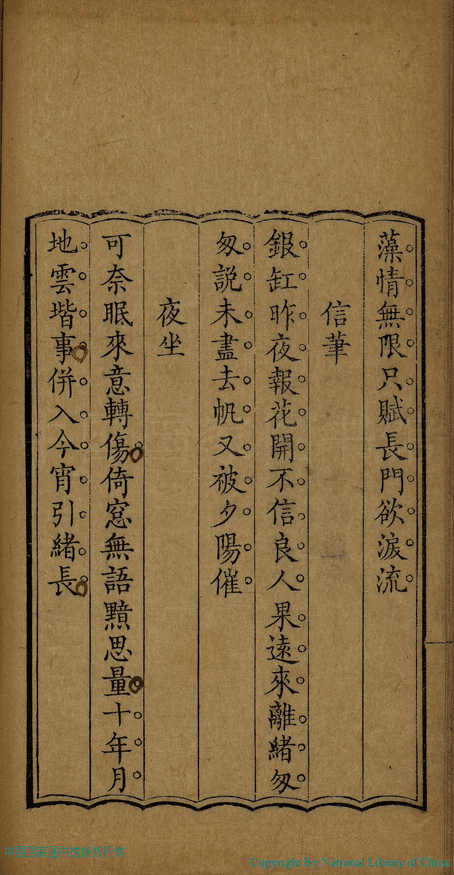 藻情無限只賦長門欲淚流
信筆
銀缸昨夜報花開不信良人果遠來離緒匆
匆説未盡去帆又被夕陽催
夜坐
可奈眠來意轉傷倚窓無語黯思量十年月
地雲堦事併入今宵引緒長
Copyright By National Library of China